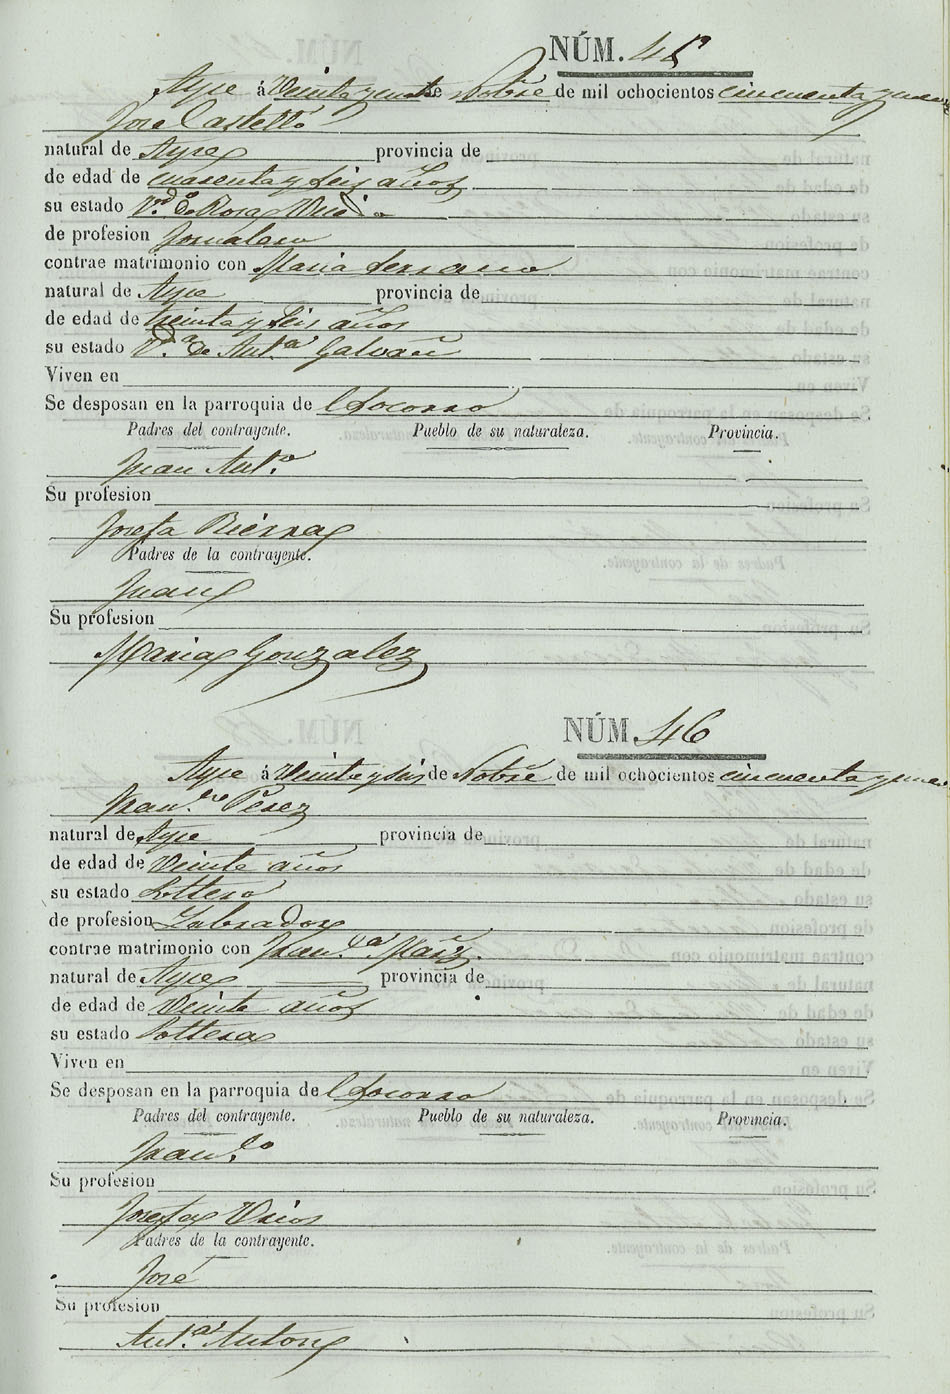 NÚM. 45
Aspe á Veinte y de Nobre de mil ochocientos cincuenta y
José Castelló
natural de Aspe provincia de
de edad de cuarenta y seis años
su estado V.do de Rosa
de profesion Jornalero
contrae matrimonio con Maria Serrano
natural de Aspe provincia de
de edad de treinta y seis años
su estado V.a de Ant.o Galvañ
Viven en
Se desposan en la parroquia de l Socorro
Padres del contrayente. Pueblo de su naturaleza. Provincia.
Juan Ant.o
Su profesion
Josefa
Padres de la contrayente.
Juan
Su profesion
Maria Gonzalez
NÚM. 46
Aspe á Veinte y seis de Nobre de mil ochocientos cincuenta y
Fran.co Perez
natural de Aspe provincia de
de edad de Veinte años
su estado Soltero
de profesion Labrador
contrae matrimonio con Fran.ca
natural de Aspe provincia de
de edad de Veinte años
su estado Soltera
Viven en
Se desposan en la parroquia de l Socorro
Padres del contrayente. Pueblo de su naturaleza. Provincia.
Fran.co
Su profesion
Josefa
Padres de la contrayente.
José
Su profesion
Ant.a Anton